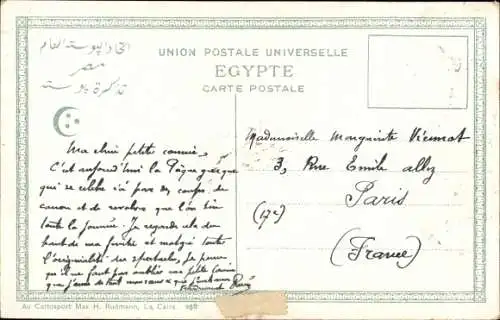 UNION POSTALE UNIVERSELLE
EGYPTE
CARTE POSTALE
مصر
تذكرة بوسته
Ma chère petite cousine,
C'est aujourd'hui la Pâque grecque
qui se célèbre ici par des coups de
canon et de revolver que l'on tire
toute la journée. Je regarde cela du
haut de ma fenêtre et malgré toute
l'originalité du spectacle, je pense
qu'il ne faut pas oublier ma petite Cousine
que j'aime de tout mon cœur et que j'embrasse
Mademoiselle Marguerite
3, Rue Emile Allez
Paris
(17e)
(France)
Au Cartosport Max H. Rudmann, Le Caire.